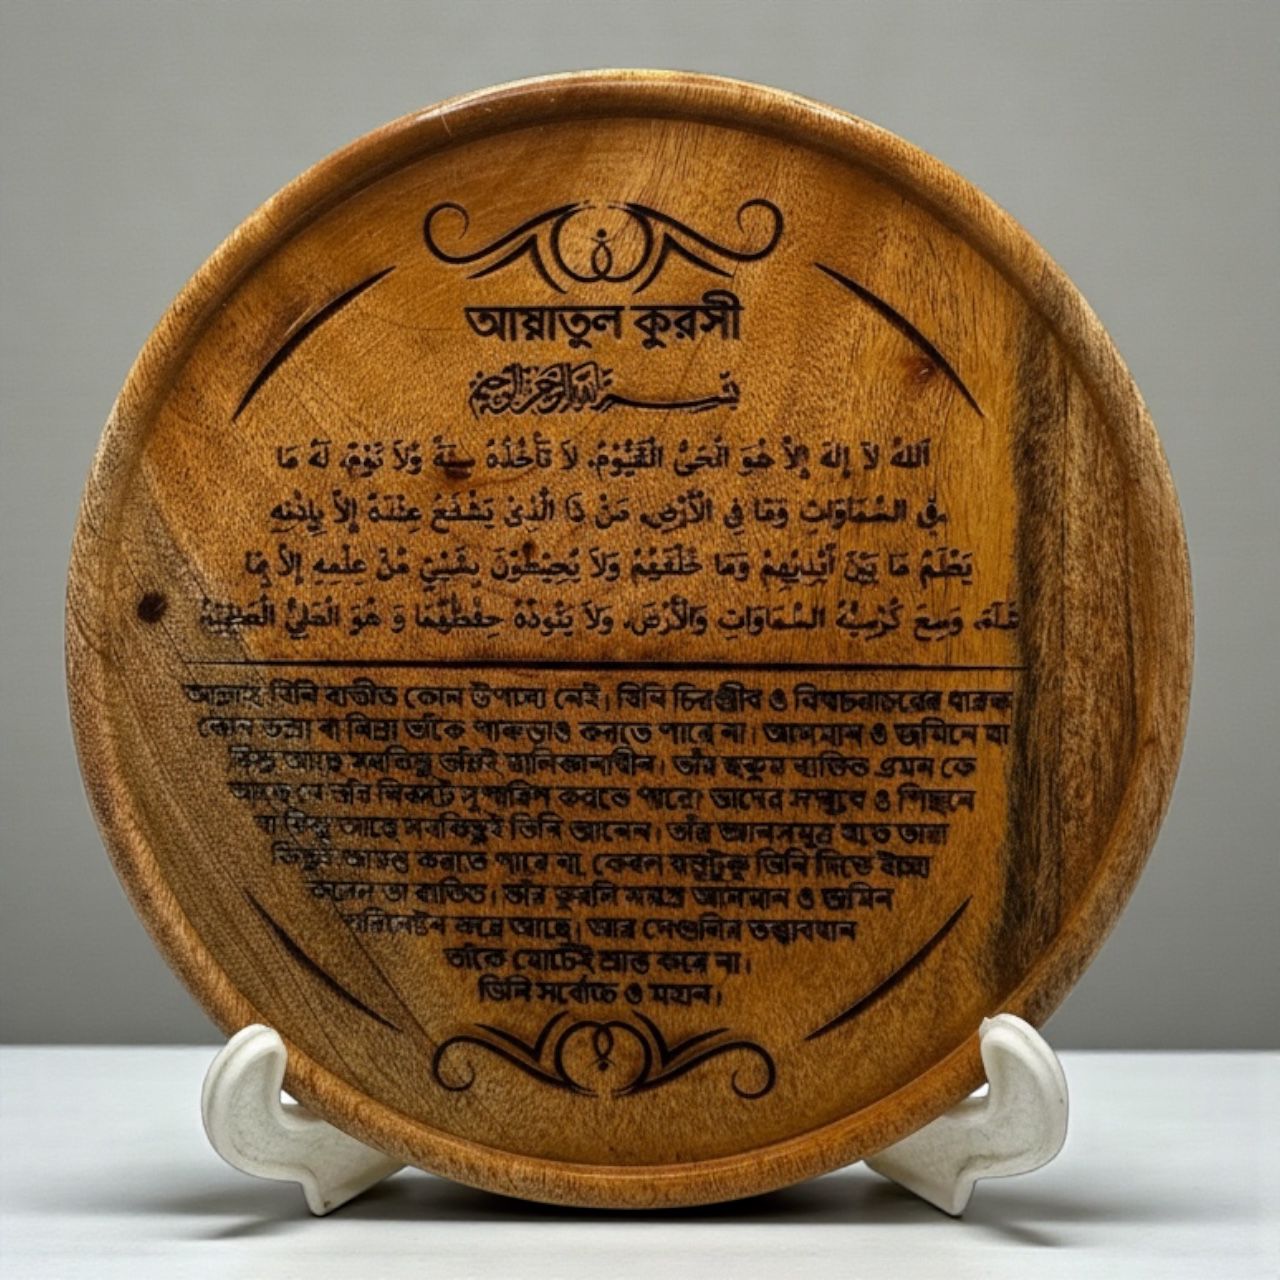 আয়াতুল কুরসী
بسم الله الرحمن الرحيم
اَللهُ لاَ إِلَهَ إِلاَّ هُوَ الْحَيُّ الْقَيُّوْمُ، لاَ تَأْخُذُهُ سِنَةٌ وَّلاَ نَوْمٌ، لَهُ مَا
فِي السَّمَاوَاتِ وَمَا فِي الْأَرْضِ، مَنْ ذَا الَّذِىْ يَشْفَعُ عِنْدَهُ إِلاَّ بِإِذْنِهِ
مَا بَيْنَ أَيْدِيْهِمْ وَمَا خَلْفَهُمْ وَلاَ يُحِيْطُوْنَ بِشَيْئٍ مِّنْ عِلْمِهِ إِلاَّ بِمَا
وَسِعَ كُرْسِيُّهُ السَّمَاوَاتِ وَالْأَرْضَ، وَلاَ يَئُودُهُ حِفْظُهُمَا وَ هُوَ الْعَلِيُّ
আল্লাহ যিনি ব্যতীত কোন উপাস্য নেই। যিনি চিরঞ্জীব ও বিশ্বচরাচরের ধারক
কোন তন্দ্রা বা নিদ্রা তাঁকে পাকড়াও করতে পারে না। আসমান ও জমিনে যা
কিছু আছে সবকিছু তাঁরই মালিকানাধীন। তাঁর হুকুম ব্যতিত এমন কে
আছে যে তাঁর নিকটে সুপারিশ করতে পারে? তাদের সম্মুখে ও পিছনে
যা কিছু আছে সবকিছুই তিনি জানেন। তাঁর জ্ঞানসমুদ্র হতে তারা
কিছুই আয়ত্ত করতে পারে না, কেবল যতটুকু তিনি দিতে ইচ্ছা
করেন তা ব্যতিত। তাঁর কুরসি সমগ্র আসমান ও জমিন
পরিবেষ্টন করে আছে। আর সেগুলির তত্ত্বাবধান
তাঁকে মোটেই শ্রান্ত করে না।
তিনি সর্বোচ্চ ও মহান।